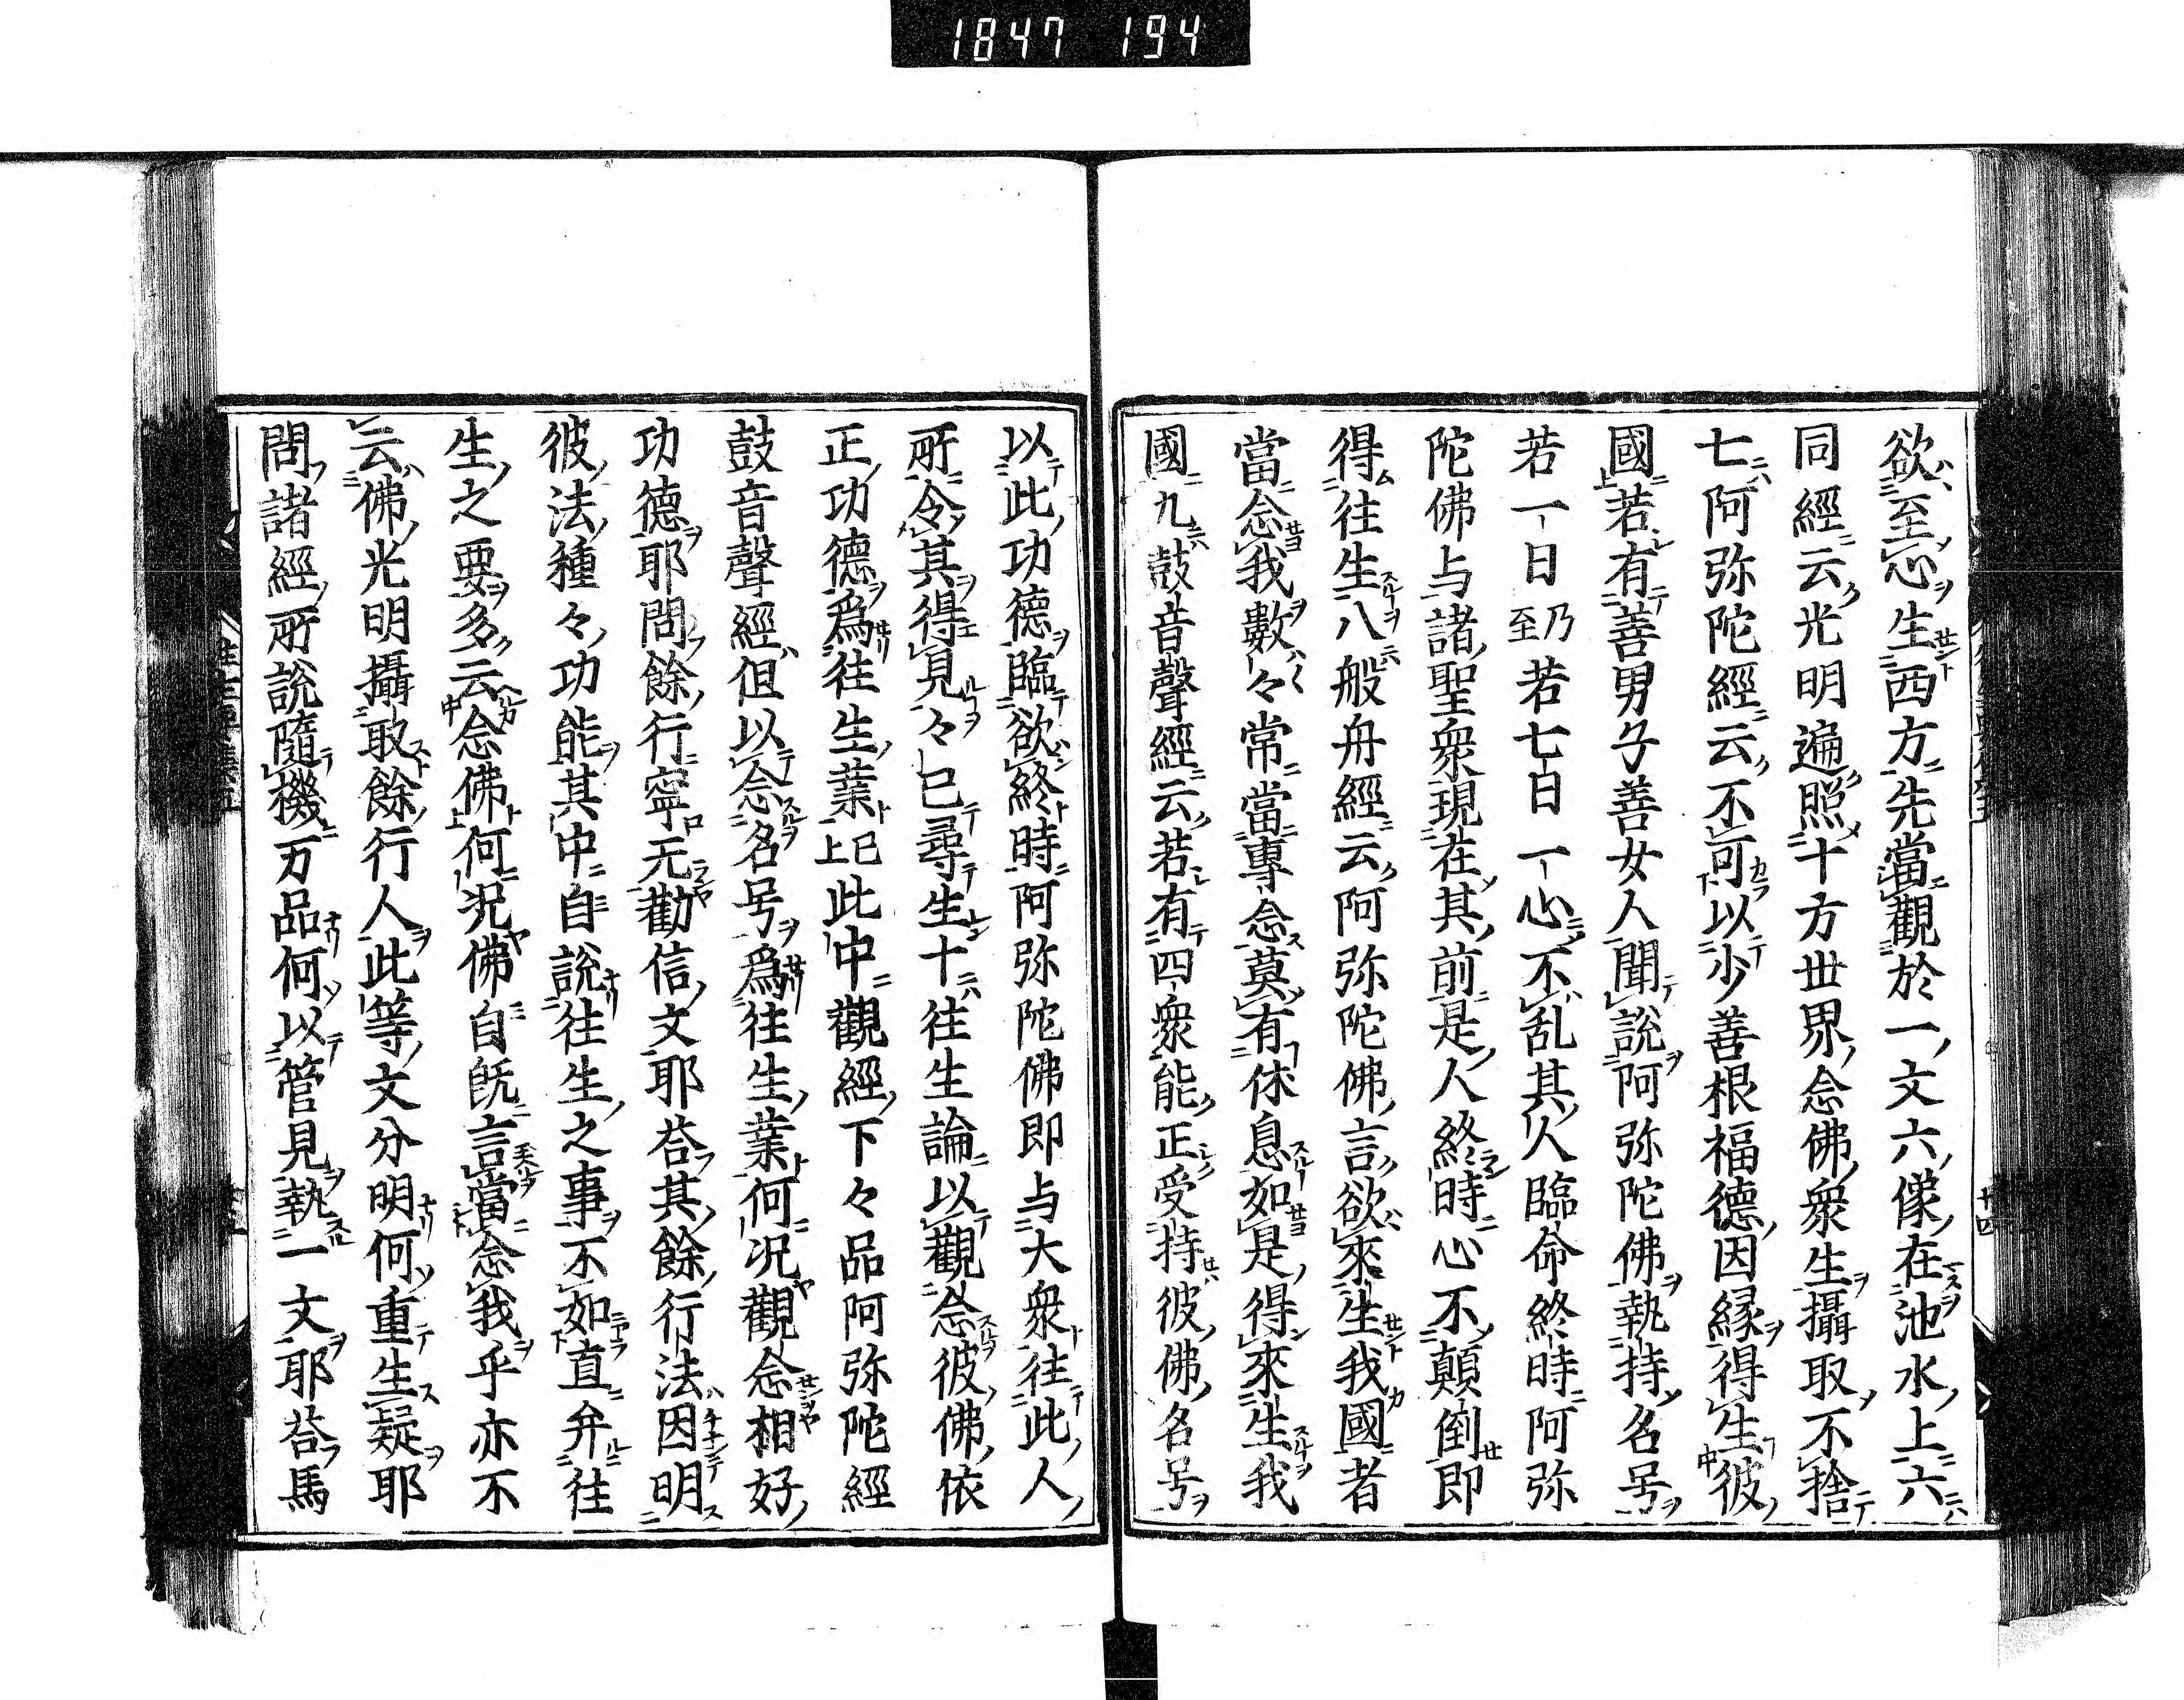 1847 194
欲至心生西方先當觀於一丈六像在池水上六
同經云光明遍照十方世界念佛衆生攝取不捨
七阿弥陀經云不可以少善根福德因縁得生彼
國若有善男子善女人聞說阿弥陀佛執持名号
若一日乃至若七日一心不乱其人臨命終時阿弥
陀佛与諸聖衆現在其前是人終時心不顛倒即
得往生八般舟經云阿弥陀佛言欲來生我國者
當念我數々常當專念莫有休息如是得來生我
國九鼓音聲經云若有四衆能正受持彼佛名号
以此功德臨欲終時阿弥陀佛即与大衆往此人
所令其得見々已尋生十往生論以觀念彼佛依
正功德爲往生業已上此中觀經下々品阿弥陀經
鼓音聲經但以念名号爲往生業何况觀念相好
功德耶問餘行寧无勸信文耶荅其餘行法因明
彼法種々功能其中自說往生之事不如直弁往
生之要多云念佛何况佛自旣言當念我乎亦不
云佛光明攝取餘行人此等文分明何重生疑耶
問諸經所說隨機万品何以管見執一文耶荅馬